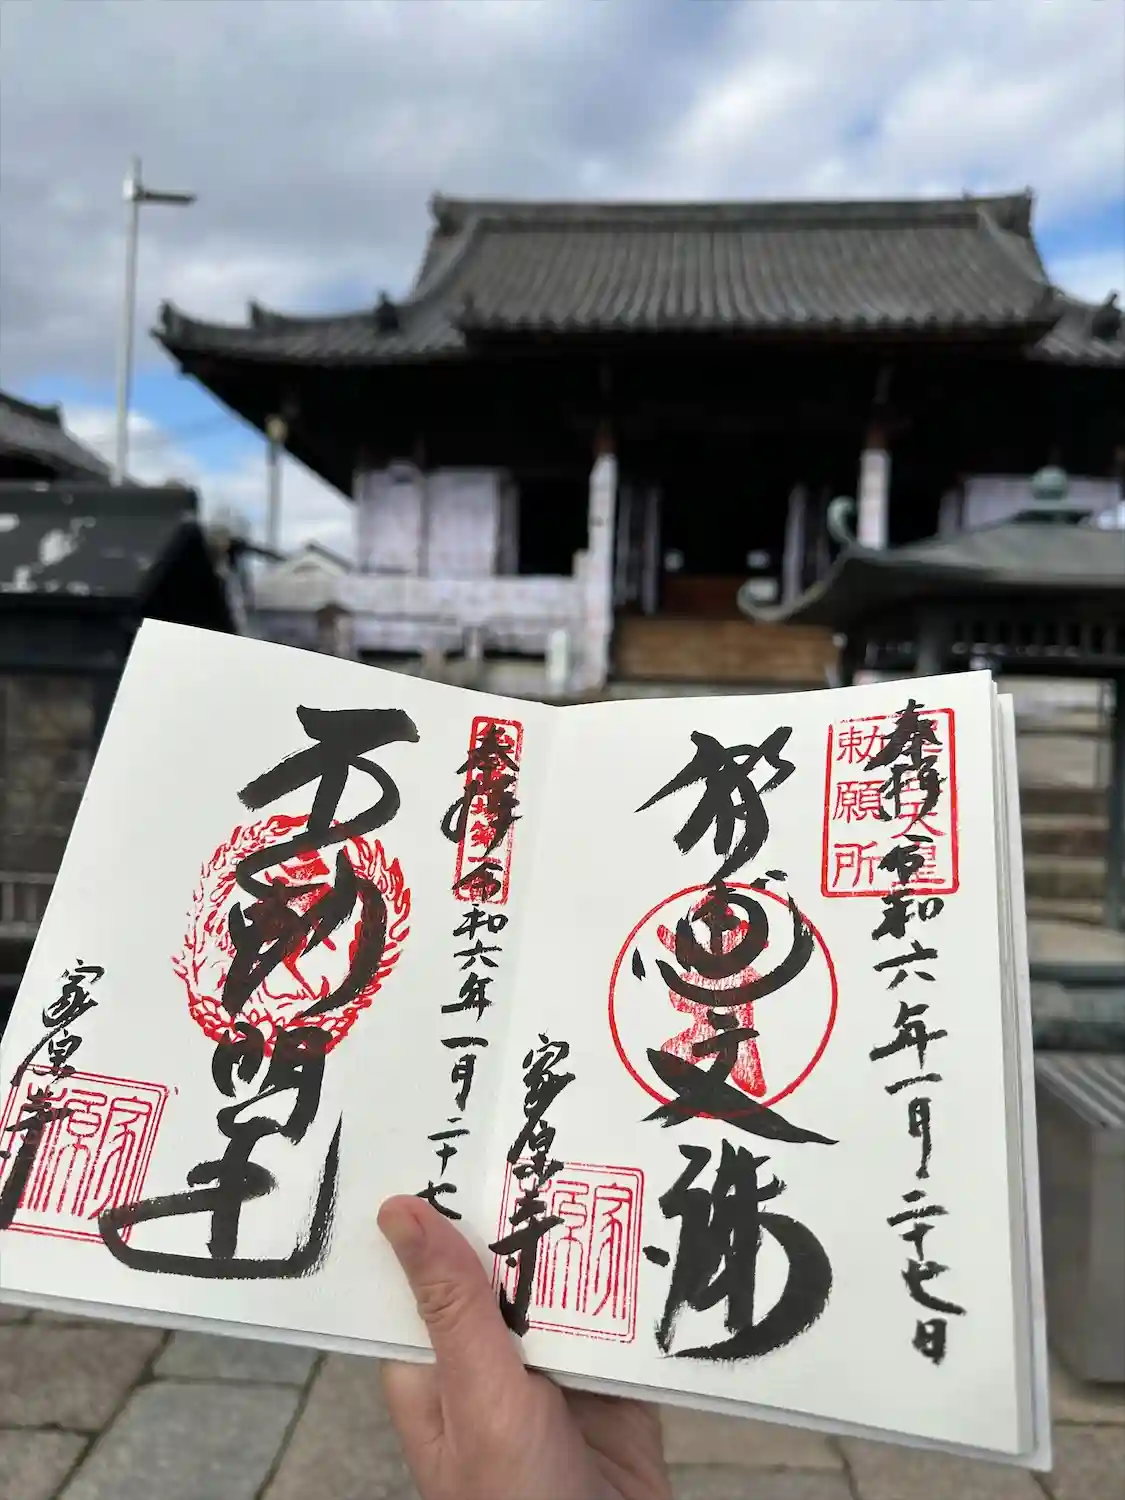 奉拝 令和六年一月二十七日
天皇
勅願所
智恵文殊
家原寺
奉拝 令和六年一月二十七
不動明王
家原寺